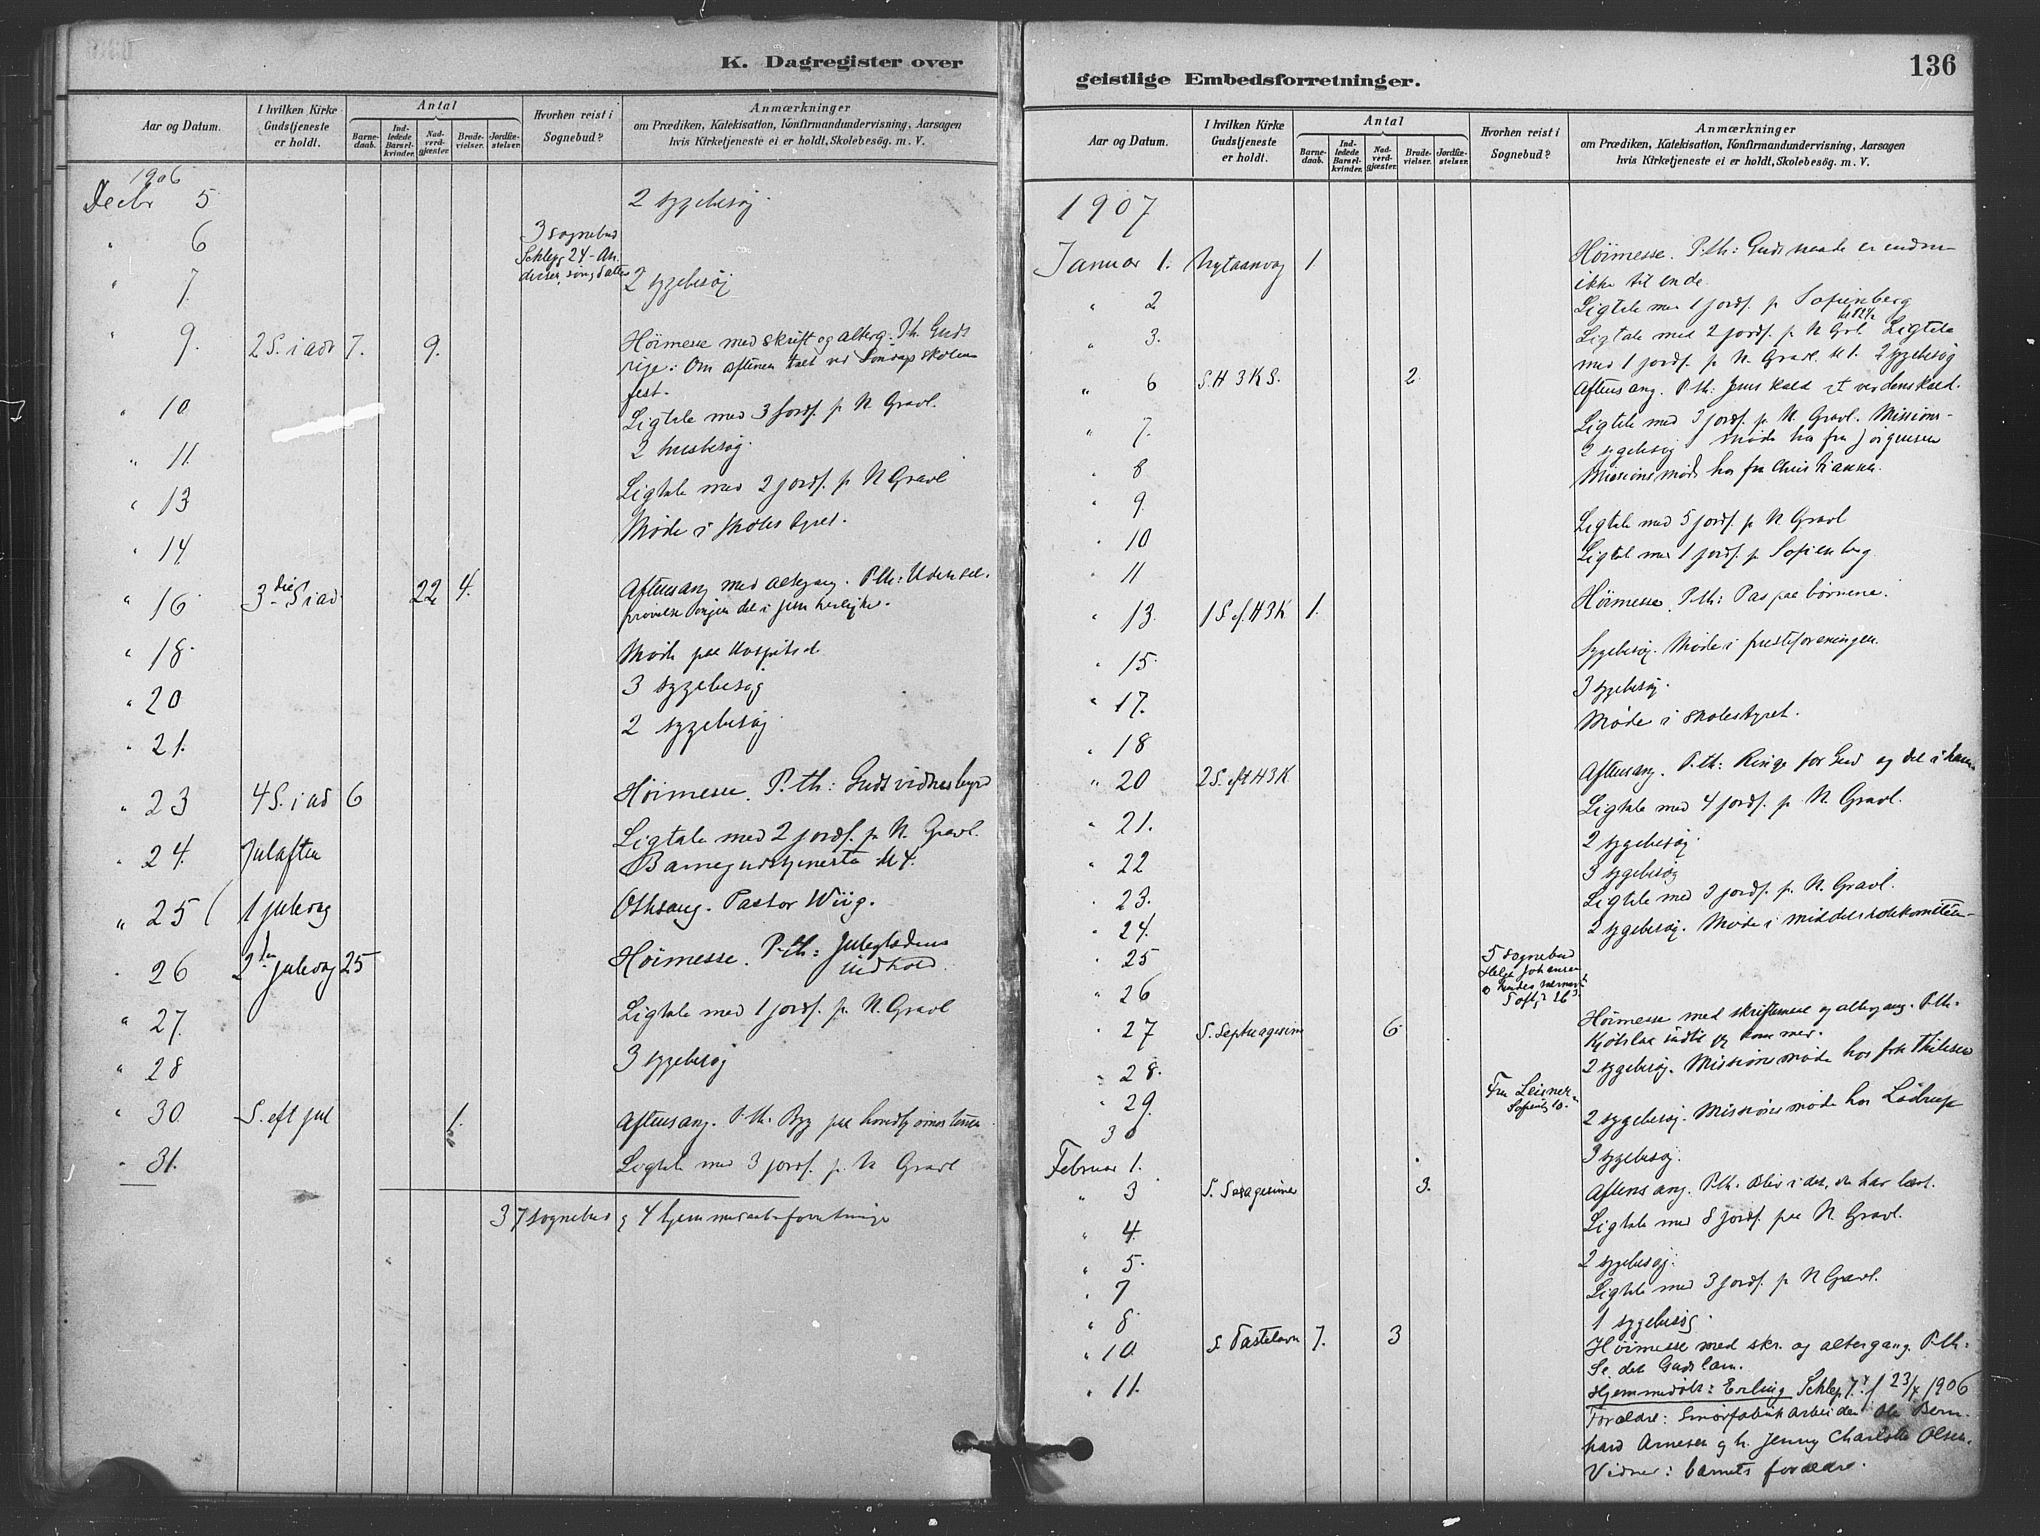 K. Dagregister over
Aar og Datum.
I hvilken Kirke Gudstjeneste er holdt.
Antal
Barne-daab.
Ind-ledede Barsel-kvinder.
Nad-verd-gjæster.
Brude-vielser.
Jordfæ-stelser.
Hvorhen reist i Sognebud?
Anmærkninger
om Prædiken, Katekisation, Konfirmandundervisning, Aarsagen
hvis Kirketjeneste ei er holdt, Skolebesög. m. V.
1906
Decbr 5 2 sygebesøg
" 6 3 sognebud
Schlepg 24 - An-
" 7. 2 sygebesøg
" 9. 2 S. i adv 7. 9. Høimesse med skrift og alterg. P.th. Guds
rige. Om aftenen talt ved Søndagsskolens
fest.
" 10 Ligtale med 3 jordf. p N. Gravl.
" 11. 2 husbesøg
" 13 Ligtale med 2 jordf. p N Gravl
" 14 Møde i skolestyret.
" 16 3die S i ad. 22 4. Aftensang med altergang. P.th: 
" 18. Møde paa Hospitalet
" 20 3 sygebesøg
" 21. 2 sygebesøg
" 23 4 S. i ad 6 Høimesse. P.th: Guds vidnesbyrd
" 24. Julaften Ligtale med 2 jordf. p N. Gravl.
Barnegudstjeneste kl 4.
" 25 1 juledag Othsang. Pastor Wiig.
" 26 2den juledag 25 Høimesse. P.th: Juleglædens
indhold.
" 27. Ligtale med 1 jordf. p. N. Gravl
" 28 3 sygebesøg
" 30. S. eft jul 1. Aftensang. P.th. Byg paa
" 31. Ligtale med 3 jordf. p. N Gravl
37 sognebud og 4 hjemmedaabsforretninger
geistlige Embedsforretninger.
136
Aar og Datum.
I hvilken Kirke Gudstjeneste er holdt.
Antal
Barne-daab.
Ind-ledede Barsel-kvinder.
Nad-verd-gjæster.
Brude-vielser.
Jordfæ-stelser.
Hvorhen reist i Sognebud?
Anmærkninger
om Prædiken, Katekisation, Konfirmandundervisning, Aarsagen
hvis Kirketjeneste ei er holdt, Skolebesög. m. V.
1907
Januar 1. Nytaarsdag 1. Høimesse. P.th: Guds naade er endnu
ikke til ende.
" 2 Ligtale med 1 jordf. p Sofienberg
" 3. Ligtale med 2 jordf. p N Grl Ligtale
med 1 jordf. p N. Gravl. kl 1. 2 sygebesøg
" 6 S. H 3 K S. 2. Aftensang. P.th: Jesus kald et verdenskald.
" 7. Ligtale med 3 jordf. p N. Gravl. Missions-
2 sygebesøg møde hos fru Jørgensen
" 8 Missionsmøde hos fru Christiansen.
" 9.
" 10 Ligtale med 5 jordf. p N Gravl
" 11 Ligtal med 1 jordf. p Sofienberg
" 13. 1 S ef. H 3 K 1. Høimesse. P.th: Pas paa børnene.
" 15. Sygebesøg. Møde i presteforeningen.
" 17. 3 sygebesøg.
" 18 Møde i skolestyret.
" 20 2 S. eft H 3 K Aftensang. P.th: Ringe for Gud og det i ham
" 21. Ligtale med 4 jordf. p N. Gravl.
" 22 2 sygebesøg.
" 23. 3 sygebesøg
" 24. Ligtale med 3 jordf. p N. Gravl.
" 25 5 sognebud 2 sygebesøg. Møde i middelskolekomiteen
Helga Johansen
" 26 Toftg 26
" 27 S. Septuagesima 6 Høimesse med skriftemaal og altergang. P.th.
" 28. 2 sygebesøg. Missionsmøde hos frk Thilesen
" 29. Fru Leisner
Sofienbg 10. 2 sygebesøg. Missionsmøde hos Lødrup
30
Februar 1. 3 sygebesøg.
" 3 S. Sexagesima 3. Aftensang. P.th. Bliv i det, du har lært.
" 4. Ligtale med 8 jordf. paa N. Gravl.
" 5. 2 sygebesøg.
" 7 Ligtale med 3 jordf. p N Gravl.
" 8 1 sygebesøg.
" 10. S Fastelavn 7. 3 Høimesse med skr. og altergang. P.th.
Se det Guds lam.
" 11. Hjemmedøbt: Erling Schlep 7. f 23/ 1906
Forældre: Smørfabrikarbeider Ole Bern-
hard Arnesen og h. Jenny Charlotte Olsen.
Vidner: barnets forældre.